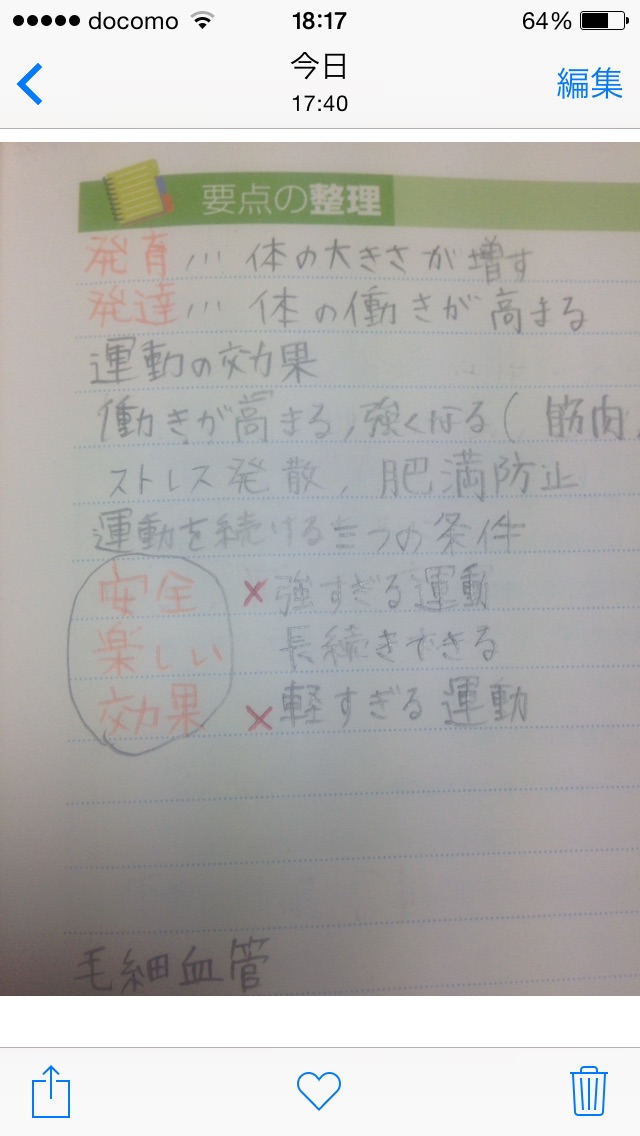 docomo 18:17 64%
今日
17:40
編集
要点の整理
発育・・・体の大きさが増す
発達・・・体の働きが高まる
運動の効果
働きが高まる,強くなる(筋肉,
ストレス発散,肥満防止
運動を続ける三つの条件
安全 ×強すぎる運動
楽しい 長続きできる
効果 ×軽すぎる運動
毛細血管